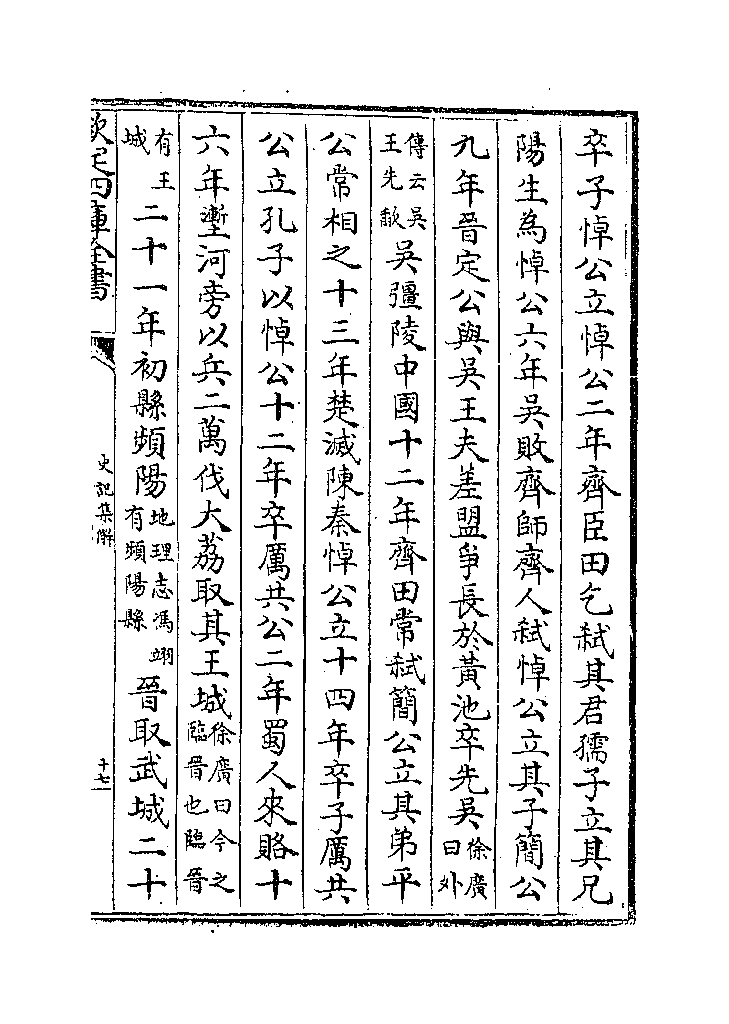 卒子悼公立悼公二年齊臣田乞弑其君孺子立其兄
陽生為悼公六年吳敗齊師齊人弑悼公立其子簡公
九年晉定公與吳王夫差盟爭長於黃池卒先吳徐廣曰外
傳云吳王先歃吳彊陵中國十二年齊田常弑簡公立其弟平
公常相之十三年楚滅陳秦悼公立十四年卒子厲共
公立孔子以悼公十二年卒厲共公二年蜀人來賂十
六年壍河旁以兵二萬伐大荔取其王城徐廣曰今之臨晉也臨晉
有王城二十一年初縣頻陽地理志馮翊有頻陽縣晉取武城二十
欽定四庫全書
史記集解
十七